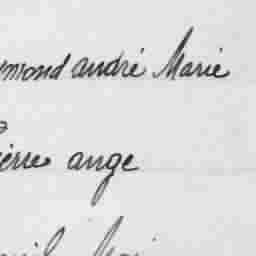 ymond andré Marie
ierre ange